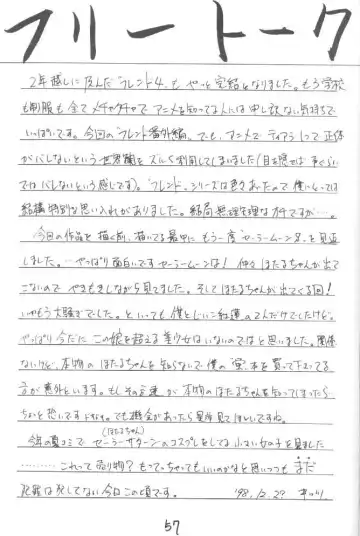 フリートーク
2年越しに及んだ"フレンド4"も やっと完結となりました。もう学校
も制服も全てメチャクチャで アニメを知ってる人には申し訳ない気持ちで
いっぱいです。今回の"フレンド番外編"でも、アニメで ティアラ1つで正体
がバレないという世界観を ズルく利用してしまいました(目を隠せば
ではバレないという感じです)。"フレンド"シリーズは
結構特別な思い入れがありました。結局無理矢理なオチですが…。
今回の作品を描く前、描いてる最中に もう一度"セーラームーンS"を見返
しました。…やっぱり面白いですセーラームーンは! 仲々ほたるちゃんが出て
こないので やきもきしながら見てました。そしてほたるちゃんが出てくる回!
いやもう大騒ぎでした。といっても僕としいこ紅蓮の2人だけでしたけど。
やっぱり今だに この娘を超える美少女はいないのではと思いました。関係
ないけど、本物の ほたるちゃんを知らないで僕の 本を買って下さってる
方が意外といます。もしその が 本物のほたるちゃんを知ってしまったら
ちょと恐いですけどね。でも機会があったら是非見てほしいですね。
(ほたるちゃん)
今年の夏コミで セーラーサターンのコスプレをしてる小さい女の子を見ました
………これって売り物? もってっちゃってもいいのかなと思いつつも まだ
犯罪は犯してない今日この頃です。 '98.12.29
57